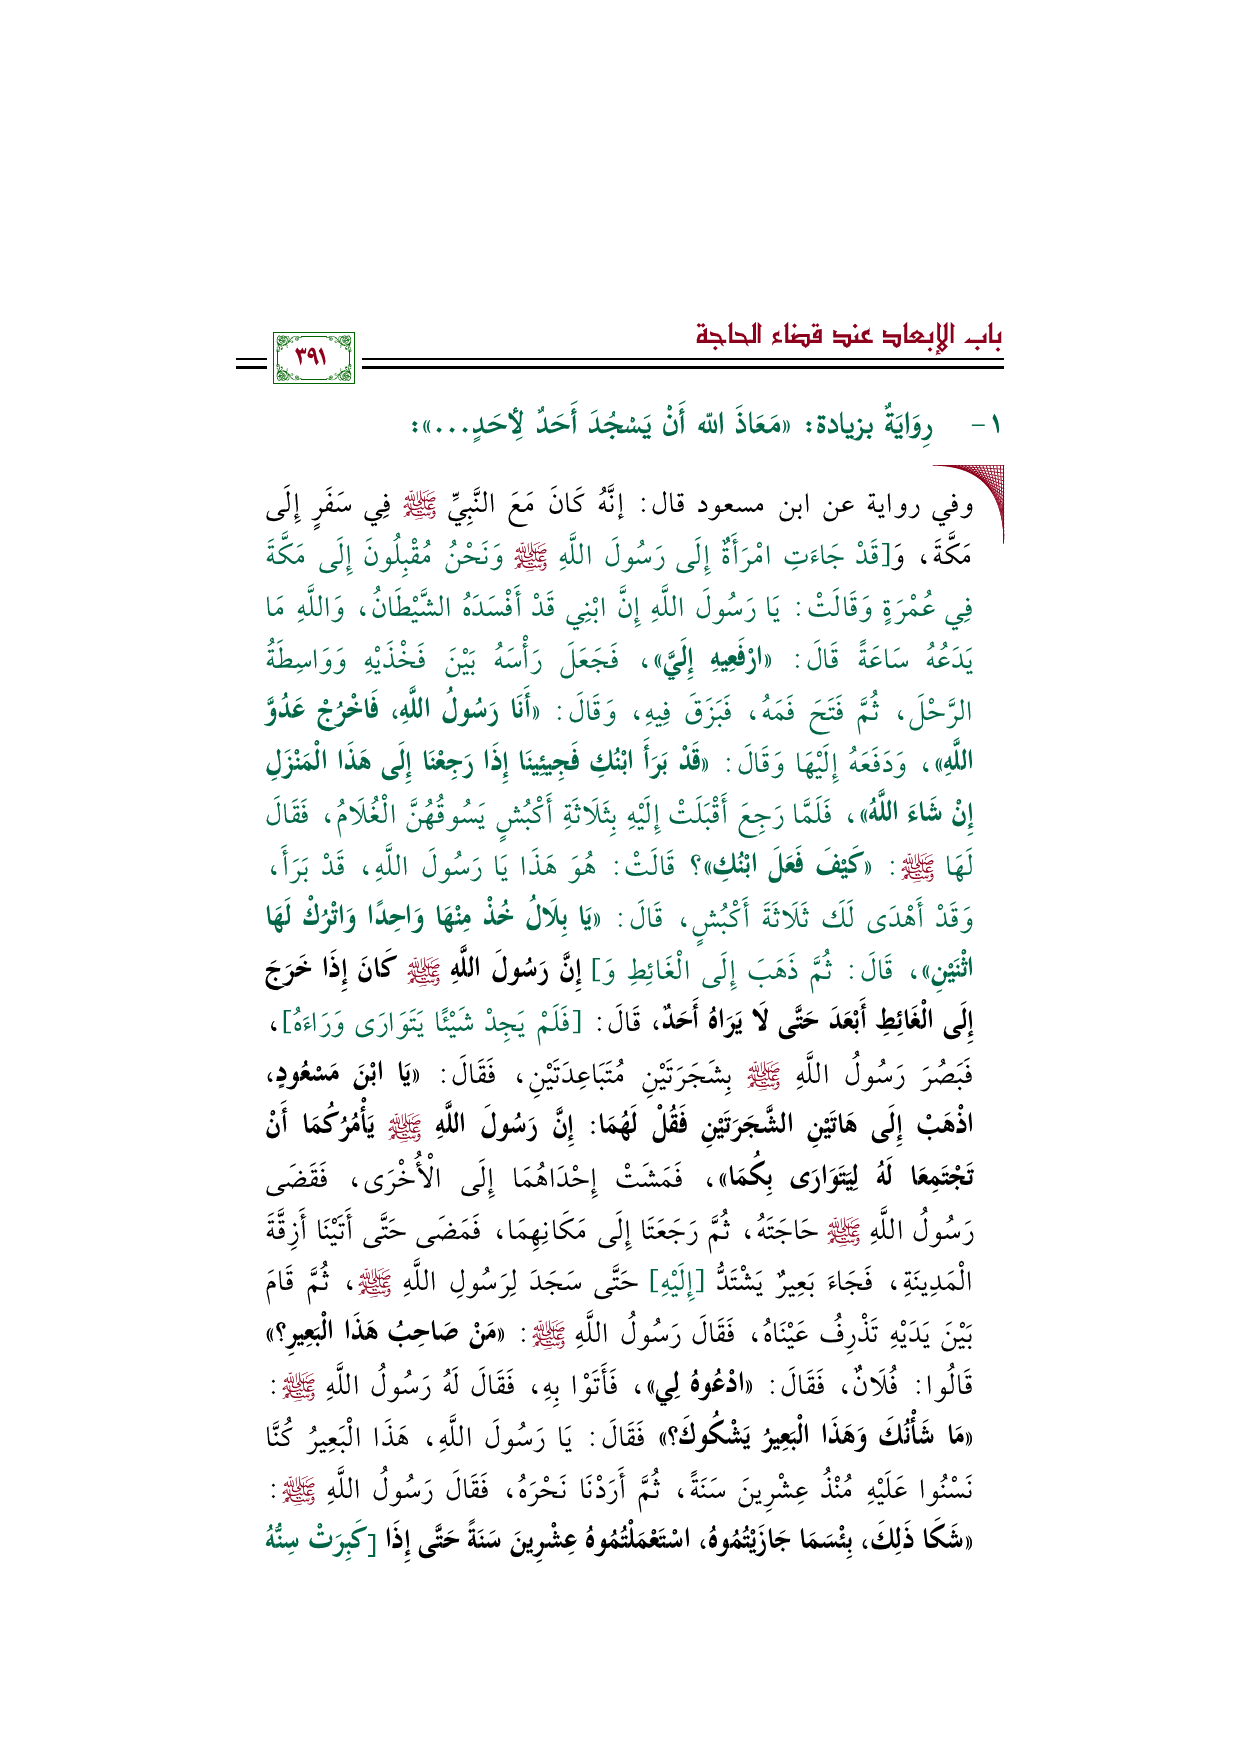 باب الإبعاد عند قضاء الحاجة
٣٩١
١- رِوَايَةٌ بزيادة: «مَعَاذَ الله أَنْ يَسْجُدَ أَحَدٌ لِأَحَدٍ...»:
وفي رواية عن ابن مسعود قال: إنَّهُ كَانَ مَعَ النَّبِيِّ ﷺ فِي سَفَرٍ إِلَى
مَكَّةَ، وَ[قَدْ جَاءَتِ امْرَأَةٌ إِلَى رَسُولَ اللَّهِ ﷺ وَنَحْنُ مُقْبِلُونَ إِلَى مَكَّةَ
فِي عُمْرَةٍ وَقَالَتْ: يَا رَسُولَ اللَّهِ إِنَّ ابْنِي قَدْ أَفْسَدَهُ الشَّيْطَانُ، وَاللَّهِ مَا
يَدَعُهُ سَاعَةً قَالَ: «ارْفَعِيهِ إِلَيَّ»، فَجَعَلَ رَأْسَهُ بَيْنَ فَخْذَيْهِ وَوَاسِطَةُ
الرَّحْلَ، ثُمَّ فَتَحَ فَمَهُ، فَبَزَقَ فِيهِ، وَقَالَ: «أَنَا رَسُولُ اللَّهِ، فَاخْرُجْ عَدُوَّ
اللَّهِ»، وَدَفَعَهُ إِلَيْهَا وَقَالَ: «قَدْ بَرَأَ ابْنُكِ فَجِيئِينَا إِذَا رَجِعْنَا إِلَى هَذَا الْمَنْزَلِ
إِنْ شَاءَ اللَّهُ»، فَلَمَّا رَجِعَ أَقْبَلَتْ إِلَيْهِ بِثَلَاثَةِ أَكْبُشٍ يَسُوقُهُنَّ الْغُلَامُ، فَقَالَ
لَهَا ﷺ: «كَيْفَ فَعَلَ ابْنُكِ»؟ قَالَتْ: هُوَ هَذَا يَا رَسُولَ اللَّهِ، قَدْ بَرَأَ،
وَقَدْ أَهْدَى لَكَ ثَلَاثَةَ أَكْبُشٍ، قَالَ: «يَا بِلَالُ خُذْ مِنْهَا وَاحِدًا وَاتْرُكْ لَهَا
اثْنَيْنِ»، قَالَ: ثُمَّ ذَهَبَ إِلَى الْغَائِطِ وَ] إِنَّ رَسُولَ اللَّهِ ﷺ كَانَ إِذَا خَرَجَ
إِلَى الْغَائِطِ أَبْعَدَ حَتَّى لَا يَرَاهُ أَحَدٌ، قَالَ: [فَلَمْ يَجِدْ شَيْئًا يَتَوَارَى وَرَاءَهُ]،
فَبَصُرَ رَسُولُ اللَّهِ ﷺ بِشَجَرَتَيْنِ مُتَبَاعِدَتَيْنِ، فَقَالَ: «يَا ابْنَ مَسْعُودٍ،
اذْهَبْ إِلَى هَاتَيْنِ الشَّجَرَتَيْنِ فَقُلْ لَهُمَا: إِنَّ رَسُولَ اللَّهِ ﷺ يَأْمُرُكُمَا أَنْ
تَجْتَمِعَا لَهُ لِيَتَوَارَى بِكُمَا»، فَمَشَتْ إِحْدَاهُمَا إِلَى الْأُخْرَى، فَقَضَى
رَسُولُ اللَّهِ ﷺ حَاجَتَهُ، ثُمَّ رَجَعَتَا إِلَى مَكَانِهِمَا، فَمَضَى حَتَّى أَتَيْنَا أَزِقَّةَ
الْمَدِينَةِ، فَجَاءَ بَعِيرٌ يَشْتَدُّ [إِلَيْهِ] حَتَّى سَجَدَ لِرَسُولِ اللَّهِ ﷺ، ثُمَّ قَامَ
بَيْنَ يَدَيْهِ تَذْرِفُ عَيْنَاهُ، فَقَالَ رَسُولُ اللَّهِ ﷺ: «مَنْ صَاحِبُ هَذَا الْبَعِيرِ؟»
قَالُوا: فُلَانٌ، فَقَالَ: «ادْعُوهُ لِي»، فَأَتَوْا بِهِ، فَقَالَ لَهُ رَسُولُ اللَّهِ ﷺ:
«مَا شَأْنُكَ وَهَذَا الْبَعِيرُ يَشْكُوكَ؟» فَقَالَ: يَا رَسُولَ اللَّهِ، هَذَا الْبَعِيرُ كُنَّا
نَسْنُوا عَلَيْهِ مُنْذُ عِشْرِينَ سَنَةً، ثُمَّ أَرَدْنَا نَحْرَهُ، فَقَالَ رَسُولُ اللَّهِ ﷺ:
«شَكَا ذَلِكَ، بِئْسَمَا جَازَيْتُمُوهُ، اسْتَعْمَلْتُمُوهُ عِشْرِينَ سَنَةً حَتَّى إِذَا [كَبِرَتْ سِنُّهُ